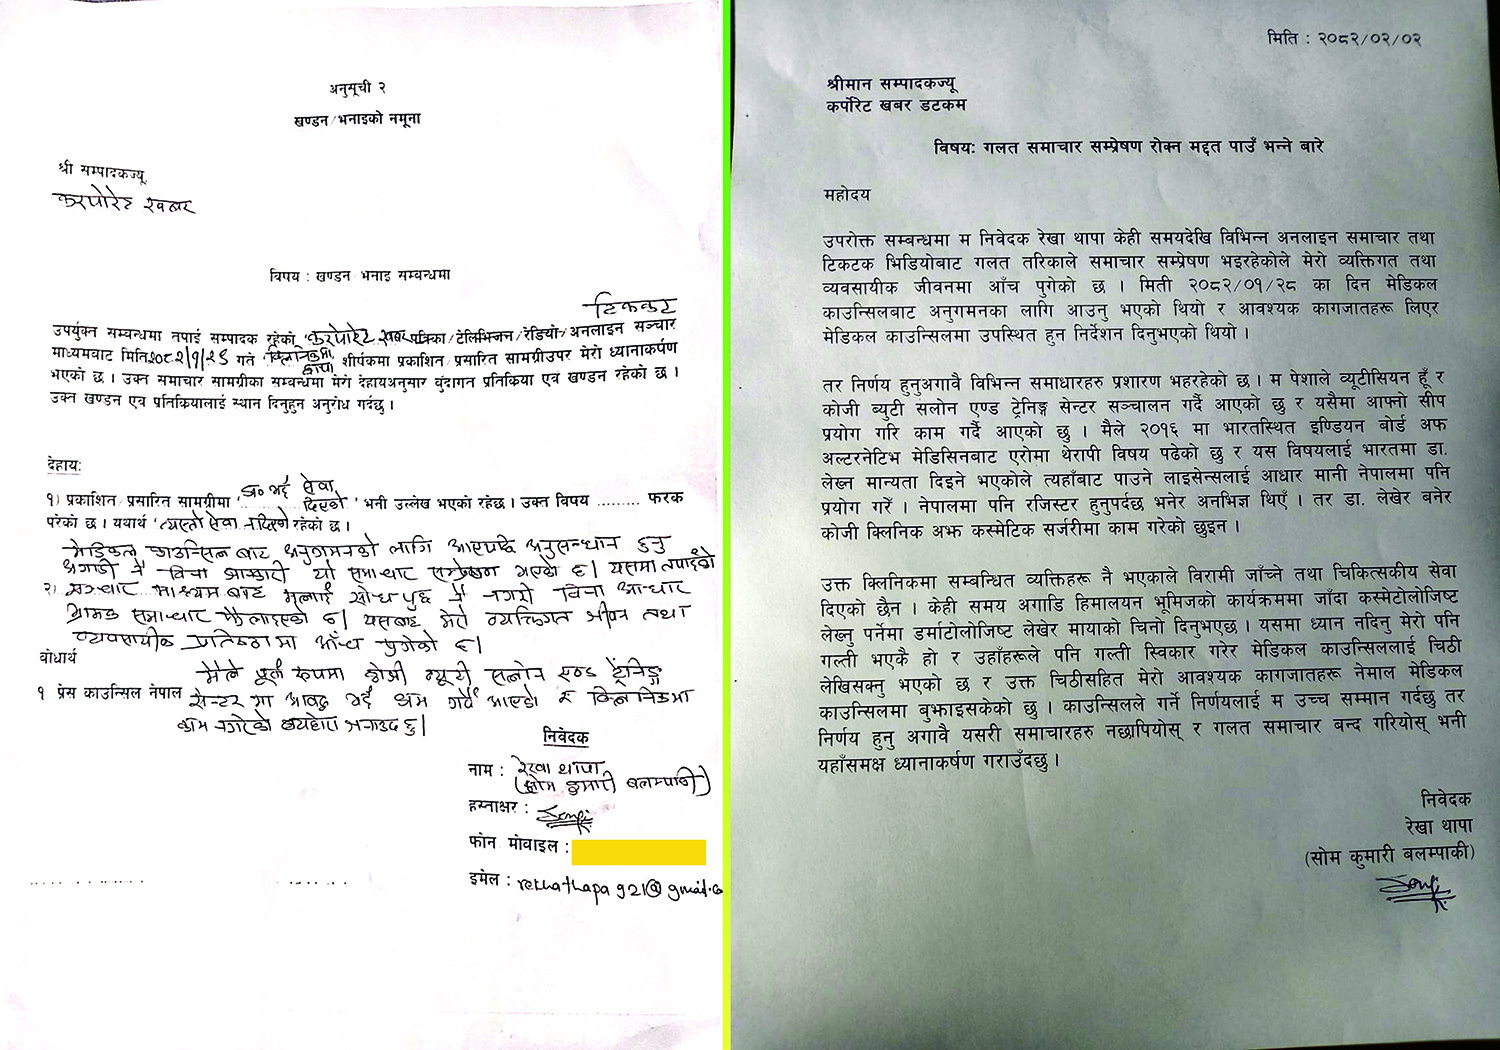 अनुसूची २
खण्डन/भनाइको नमूना
श्री सम्पादकज्यू
करपोरेट खबर
विषय : खण्डन भनाइ सम्बन्धमा
टिकटक
उपर्युक्त सम्बन्धमा नपाई सम्पादक रहेको 'करपोरेट खबर पत्रिका/टेलिभिजन/रेडियो/अनलाइन सञ्चार
माध्यमवाट मिति २०८२/१/२९ गते 'क्लिनिकमा शीर्षकमा प्रकाशित/प्रसारित सामग्रीउपर मेरो ध्यानाकर्षण
भएको छ । उक्त समाचार सामग्रीका सम्बन्धमा मेरो देहायअनुसार वुंदागत प्रतिक्रिया एवं खण्डन रहेको छ ।
उक्त खण्डन एवं प्रतिक्रियालाई स्थान दिनुहुन अनुरोध गर्दछु ।
देहाय:
१) प्रकाशित/प्रसारित सामग्रीमा 'डा० भई सेवा दिएको' भनी उल्लेख भएको रहेछ । उक्त विषय ......... फरक
परेको छ । यथार्थ 'त्यस्तो सेवा नदिएको रहेको छ ।
मेडिकल काउन्सिल बाट अनुगमनको लागि आएपछि अनुसन्धान हुनु
अगाडी नै विना जानकारी यो समाचार सम्प्रेषण भएको छ। यसमा तपाईंको
२) सञ्चार माध्यम बाट मलाई सोध पुछ नै नगरी विना आधार
भ्रामक समाचार फैलाइएको छ। यसबाट मेरो व्यक्तिगत जीवन तथा
व्यवसायीक प्रतिष्ठामा आँच पुगेको छ।
वोधार्थ
मैले पूर्ण रूपमा कोजी ब्यूटी सलोन एण्ड ट्रेनिङ्ग
१ प्रेस काउन्सिल नेपाल सेन्टर मा आवद्ध भई काम गर्दै आएको र क्लिनिकमा
काम नगरेको व्यहोरा जनाउदछु।
निवेदक
नाम : रेखा थापा
(सोम कुमारी बलम्पाकी)
हस्ताक्षर :
फोन मोवाइल :
इमेल : rekhathapa921@gmail.co
मिति : २०८२/०२/०२
श्रीमान सम्पादकज्यू
कर्पोरेट खबर डटकम
विषय: गलत समाचार सम्प्रेषण रोक्न मद्दत पाउँ भन्ने बारे
महोदय
उपरोक्त सम्बन्धमा म निवेदक रेखा थापा केही समयदेखि विभिन्न अनलाइन समाचार तथा
टिकटक भिडियोबाट गलत तरिकाले समाचार सम्प्रेषण भइरहेकोले मेरो व्यक्तिगत तथा
व्यवसायीक जीवनमा आँच पुगेको छ । मिती २०८२/०१/२८ का दिन मेडिकल
काउन्सिलबाट अनुगमनका लागि आउनु भएको थियो र आवश्यक कागजातहरू लिएर
मेडिकल काउन्सिलमा उपस्थित हुन निर्देशन दिनुभएको थियो ।
तर निर्णय हुनुअगावै विभिन्न समाधारहरु प्रशारण भहरहेको छ । म पेशाले व्यूटीसियन हूँ र
कोजी ब्युटी सलोन एण्ड ट्रेनिङ्ग सेन्टर सञ्चालन गर्दै आएको छु र यसैमा आफ्नो सीप
प्रयोग गरि काम गर्दै आएको छु । मैले २०१६ मा भारतस्थित इण्डियन बोर्ड अफ
अल्टरनेटिभ मेडिसिनबाट एरोमा थेरापी विषय पढेको छु र यस विषयलाई भारतमा डा.
लेख्न मान्यता दिइने भएकोले त्यहाँबाट पाउने लाइसेन्सलाई आधार मानी नेपालमा पनि
प्रयोग गरेँ । नेपालमा पनि रजिस्टर हुनुपर्दछ भनेर अनभिज्ञ थिएँ । तर डा. लेखेर बनेर
कोजी क्लिनिक अझ कस्मेटिक सर्जरीमा काम गरेको छुइन ।
उक्त क्लिनिकमा सम्बन्धित व्यक्तिहरू नै भएकाले विरामी जाँच्ने तथा चिकित्सकीय सेवा
दिएको छैन । केही समय अगाडि हिमालयन भूमिजको कार्यक्रममा जाँदा कस्मेटोलोजिष्ट
लेख्नु पर्नेमा डर्माटोलोजिष्ट लेखेर मायाको चिनो दिनुभएछ । यसमा ध्यान नदिनु मेरो पनि
गल्ती भएकै हो र उहाँहरूले पनि गल्ती स्विकार गरेर मेडिकल काउन्सिललाई चिठी
लेखिसक्नु भएको छ र उक्त चिठीसहित मेरो आवश्यक कागजातहरू नेमाल मेडिकल
काउन्सिलमा बुझाइसकेको छु । काउन्सिलले गर्ने निर्णयलाई म उच्च सम्मान गर्दछु तर
निर्णय हुनु अगावै यसरी समाचारहरु नछापियोस् र गलत समाचार बन्द गरियोस् भनी
यहाँसमक्ष ध्यानाकर्षण गराउँदछु ।
निवेदक
रेखा थापा
(सोम कुमारी बलम्पाकी)